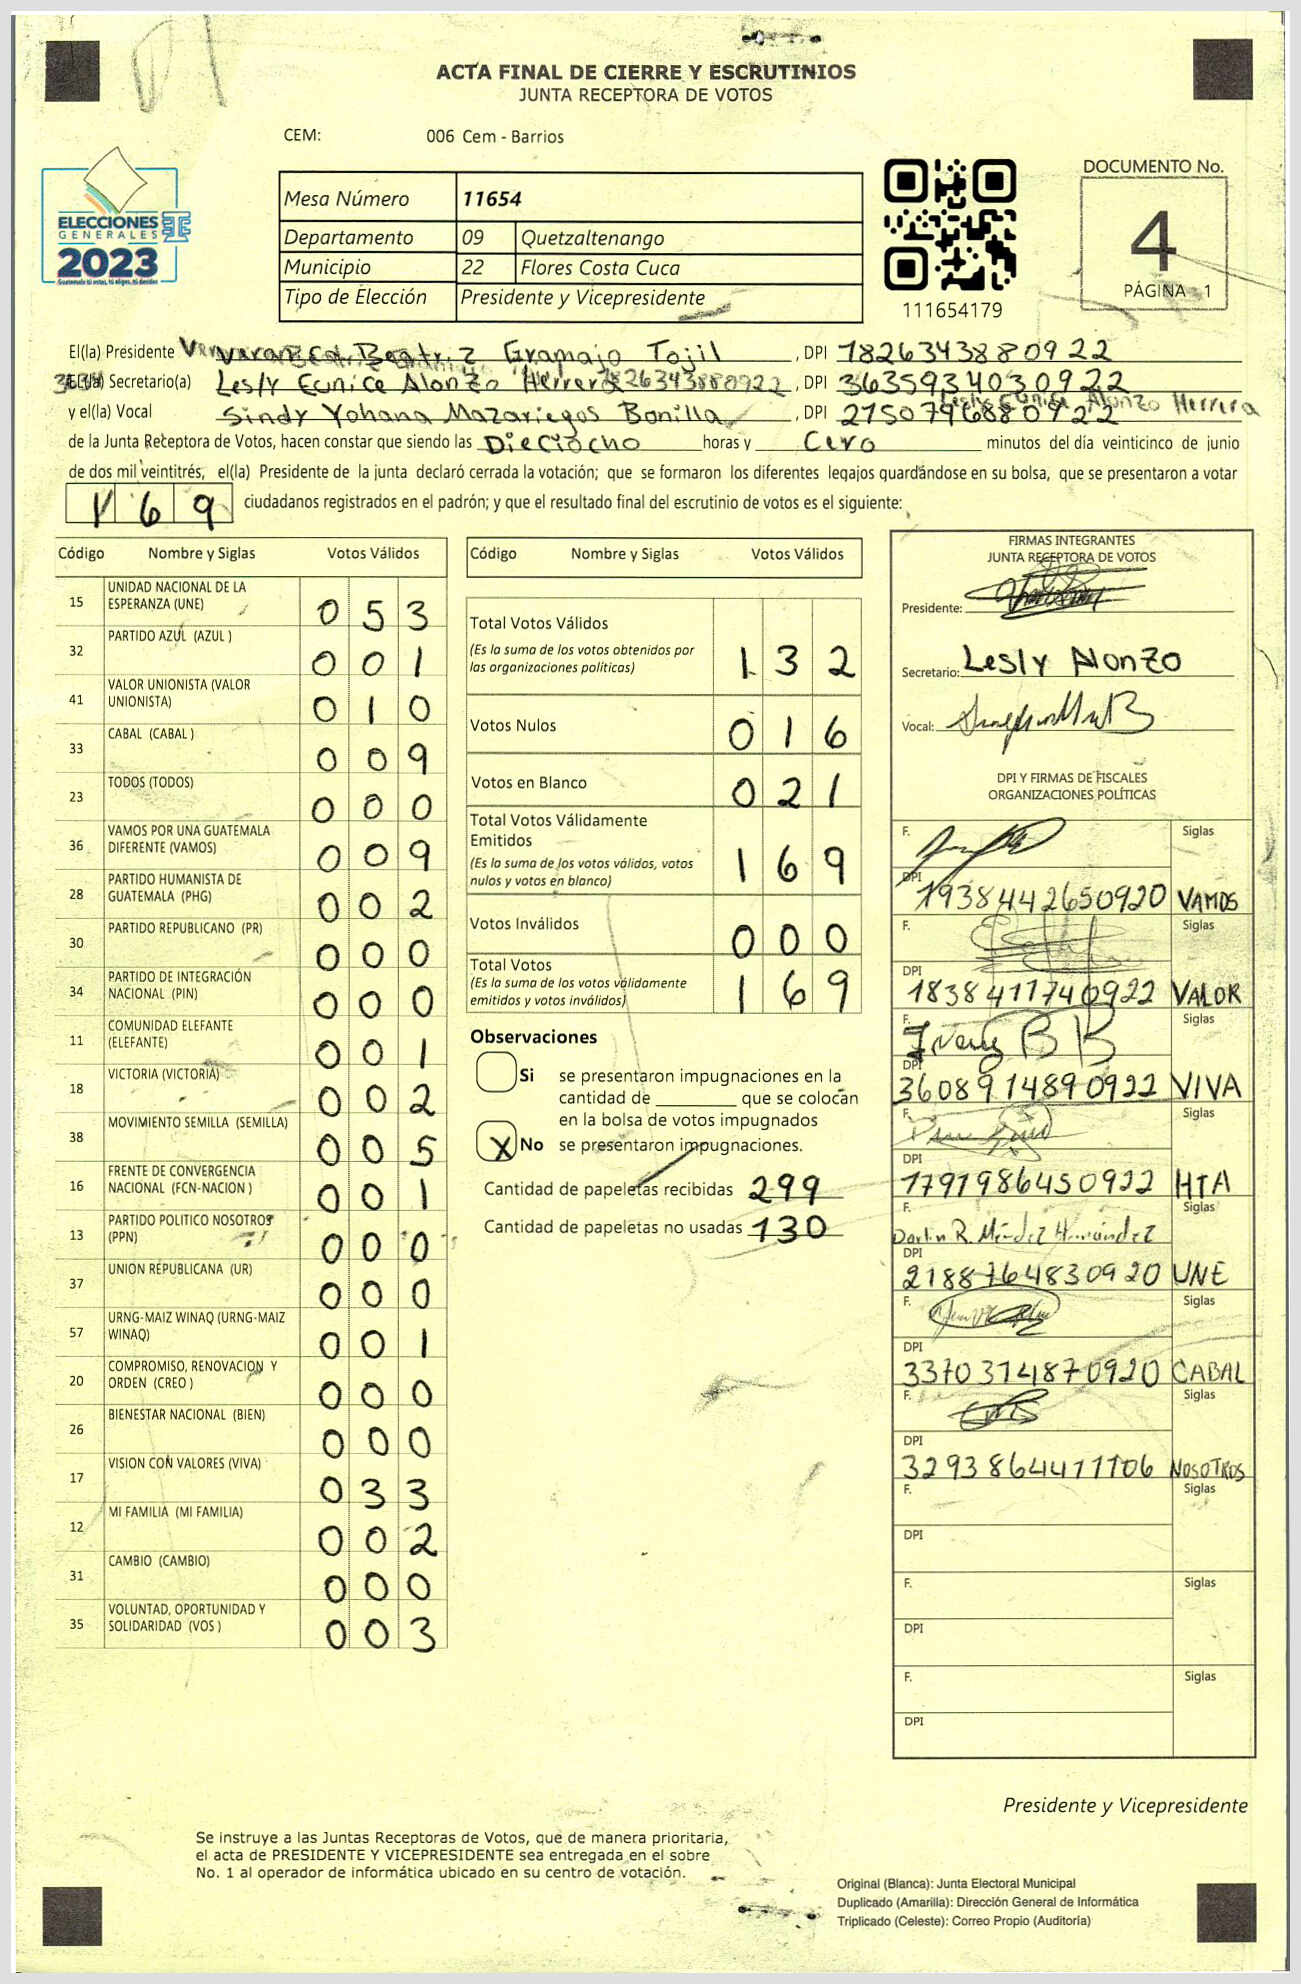 ACTA FINAL DE CIERRE Y ESCRUTINIOS
JUNTA RECEPTORA DE VOTOS
CEM: 006 Cem - Barrios
ELECCIONES
GENERALES
2023
Guatemala tú votas, tú eliges, tú decides
Mesa Número 11654
Departamento 09 Quetzaltenango
Municipio 22 Flores Costa Cuca
Tipo de Elección Presidente y Vicepresidente
111654179
DOCUMENTO No.
4
PÁGINA 1
El(la) Presidente Beatriz Gramajo Tojil , DPI 1826343880922
El(la) Secretario(a) Lesly Eunice Alonzo Herrera 1826343880922 , DPI 3635934030922
Lesly Eunice Alonzo Herrera
y el(la) Vocal Sindy Yohana Mazariegos Bonilla , DPI 2750796880922
de la Junta Receptora de Votos, hacen constar que siendo las Dieciocho horas y Cero minutos del día veinticinco de junio
de dos mil veintitrés, el(la) Presidente de la junta declaró cerrada la votación; que se formaron los diferentes legajos guardándose en su bolsa, que se presentaron a votar
169 ciudadanos registrados en el padrón; y que el resultado final del escrutinio de votos es el siguiente:
Código Nombre y Siglas Votos Válidos
15 UNIDAD NACIONAL DE LA ESPERANZA (UNE) 053
32 PARTIDO AZUL (AZUL ) 001
41 VALOR UNIONISTA (VALOR UNIONISTA) 010
33 CABAL (CABAL ) 009
23 TODOS (TODOS) 000
36 VAMOS POR UNA GUATEMALA DIFERENTE (VAMOS) 009
28 PARTIDO HUMANISTA DE GUATEMALA (PHG) 002
30 PARTIDO REPUBLICANO (PR) 000
34 PARTIDO DE INTEGRACIÓN NACIONAL (PIN) 000
11 COMUNIDAD ELEFANTE (ELEFANTE) 001
18 VICTORIA (VICTORIA) 002
38 MOVIMIENTO SEMILLA (SEMILLA) 005
16 FRENTE DE CONVERGENCIA NACIONAL (FCN-NACION ) 001
13 PARTIDO POLITICO NOSOTROS (PPN) 000
37 UNION REPUBLICANA (UR) 000
57 URNG-MAIZ WINAQ (URNG-MAIZ WINAQ) 001
20 COMPROMISO, RENOVACION Y ORDEN (CREO ) 000
26 BIENESTAR NACIONAL (BIEN) 000
17 VISION CON VALORES (VIVA) 033
12 MI FAMILIA (MI FAMILIA) 002
31 CAMBIO (CAMBIO) 000
35 VOLUNTAD, OPORTUNIDAD Y SOLIDARIDAD (VOS ) 003
Código Nombre y Siglas Votos Válidos
Total Votos Válidos 132
(Es la suma de los votos obtenidos por
las organizaciones políticas)
Votos Nulos 016
Votos en Blanco 021
Total Votos Válidamente
Emitidos 169
(Es la suma de los votos válidos, votos
nulos y votos en blanco)
Votos Inválidos 000
Total Votos 169
(Es la suma de los votos válidamente
emitidos y votos inválidos)
Observaciones
Si se presentaron impugnaciones en la
cantidad de ________ que se colocan
en la bolsa de votos impugnados
X No se presentaron impugnaciones.
Cantidad de papeletas recibidas 299
Cantidad de papeletas no usadas 130
FIRMAS INTEGRANTES
JUNTA RECEPTORA DE VOTOS
Presidente:
Secretario: Lesly Alonzo
Vocal:
DPI Y FIRMAS DE FISCALES
ORGANIZACIONES POLÍTICAS
F. Siglas
DPI 1938442650920 VAMOS
F. Siglas
DPI 1838411740922 VALOR
F. Siglas
DPI 3608914890922 VIVA
F. Siglas
DPI 1791986450922 HTA
F. Darlin R. Méndez Hernández Siglas
DPI 2188764830920 UNE
F. Siglas
DPI 3370314870920 CABAL
F. Siglas
DPI 3293864411106 NOSOTROS
F. Siglas
DPI
F. Siglas
DPI
F. Siglas
DPI
Presidente y Vicepresidente
Se instruye a las Juntas Receptoras de Votos, que de manera prioritaria,
el acta de PRESIDENTE Y VICEPRESIDENTE sea entregada en el sobre
No. 1 al operador de informática ubicado en su centro de votación.
Original (Blanca): Junta Electoral Municipal
Duplicado (Amarilla): Dirección General de Informática
Triplicado (Celeste): Correo Propio (Auditoría)